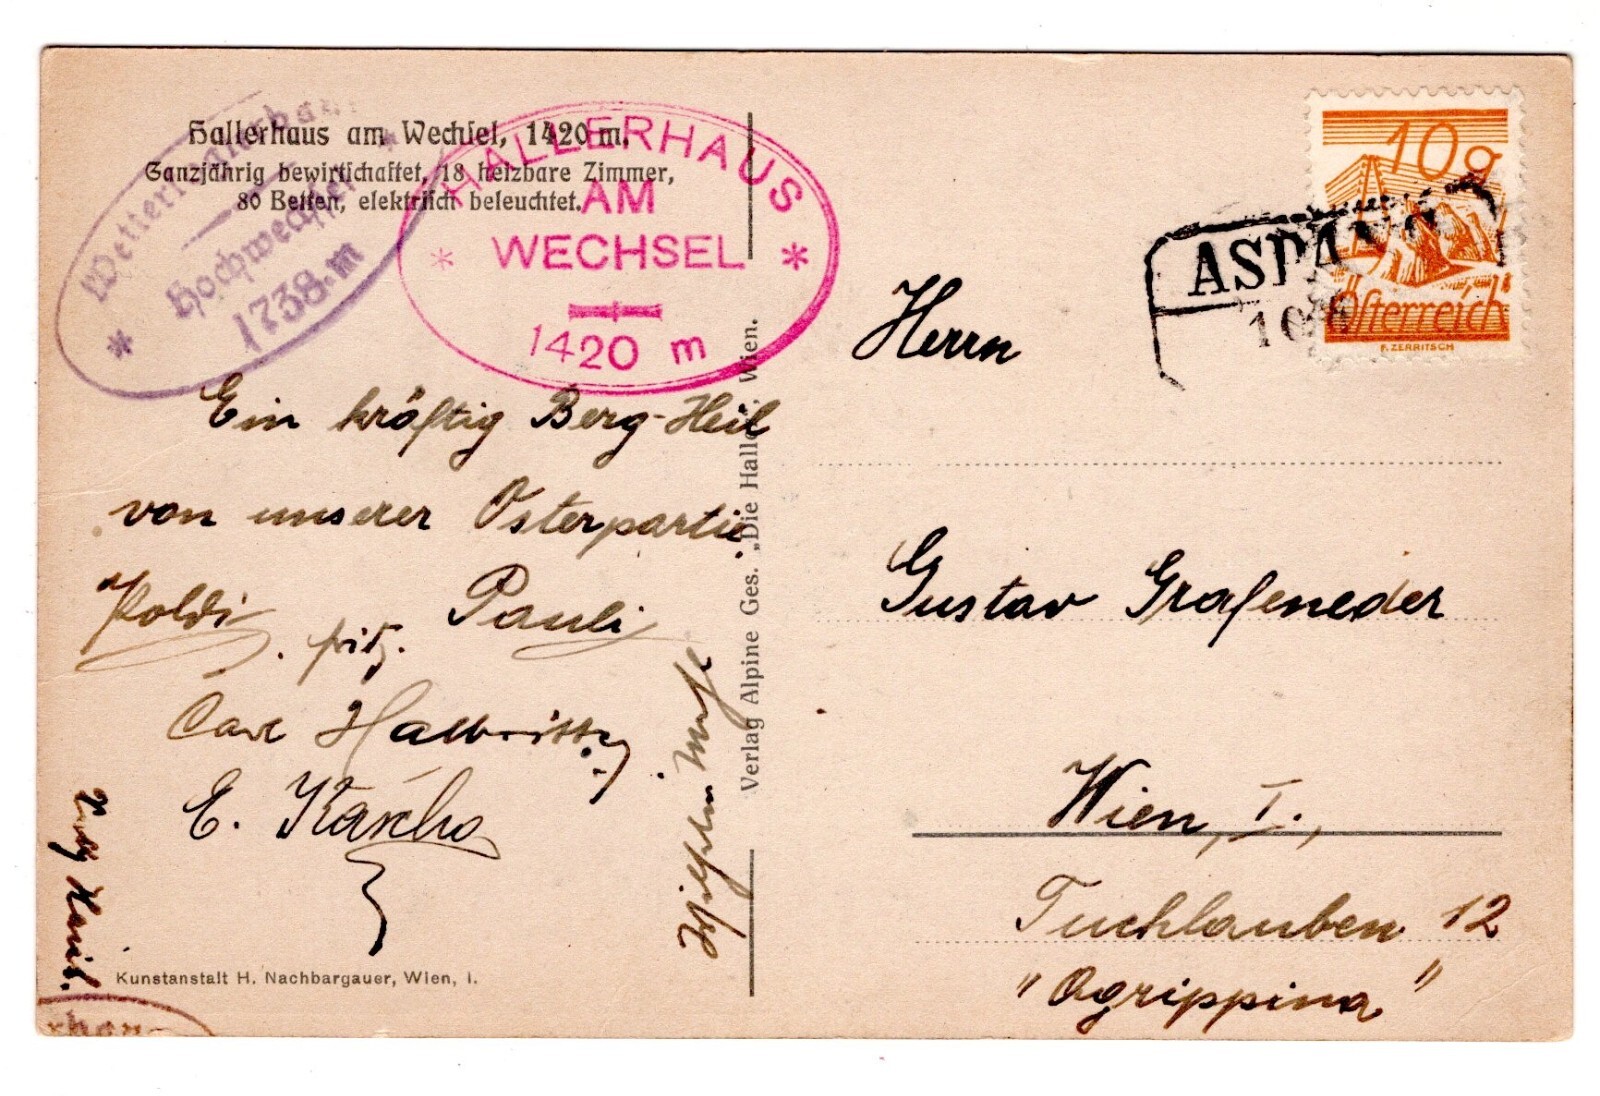 Hallerhaus am Wechsel, 1420 m.
Ganzjährig bewirtschaftet, 18 heizbare Zimmer,
80 Betten, elektrisch beleuchtet.
Hochwechsel
1738 m
HALLERHAUS
AM
WECHSEL
1420 m
10g
Österreich
F. ZERRITSCH
ASPANG
Ein kräftig Berg-Heil
von unserer Osterpartie.
Poldi Pauli
Fritz.
Carl
E.
Wilhelm
Verlag Alpine Ges. „Die Haller", Wien.
Kunstanstalt H. Nachbargauer, Wien, I.
Herrn
Gustav Grafeneder
Wien, I.,
Tuchlauben 12
"Agrippina"